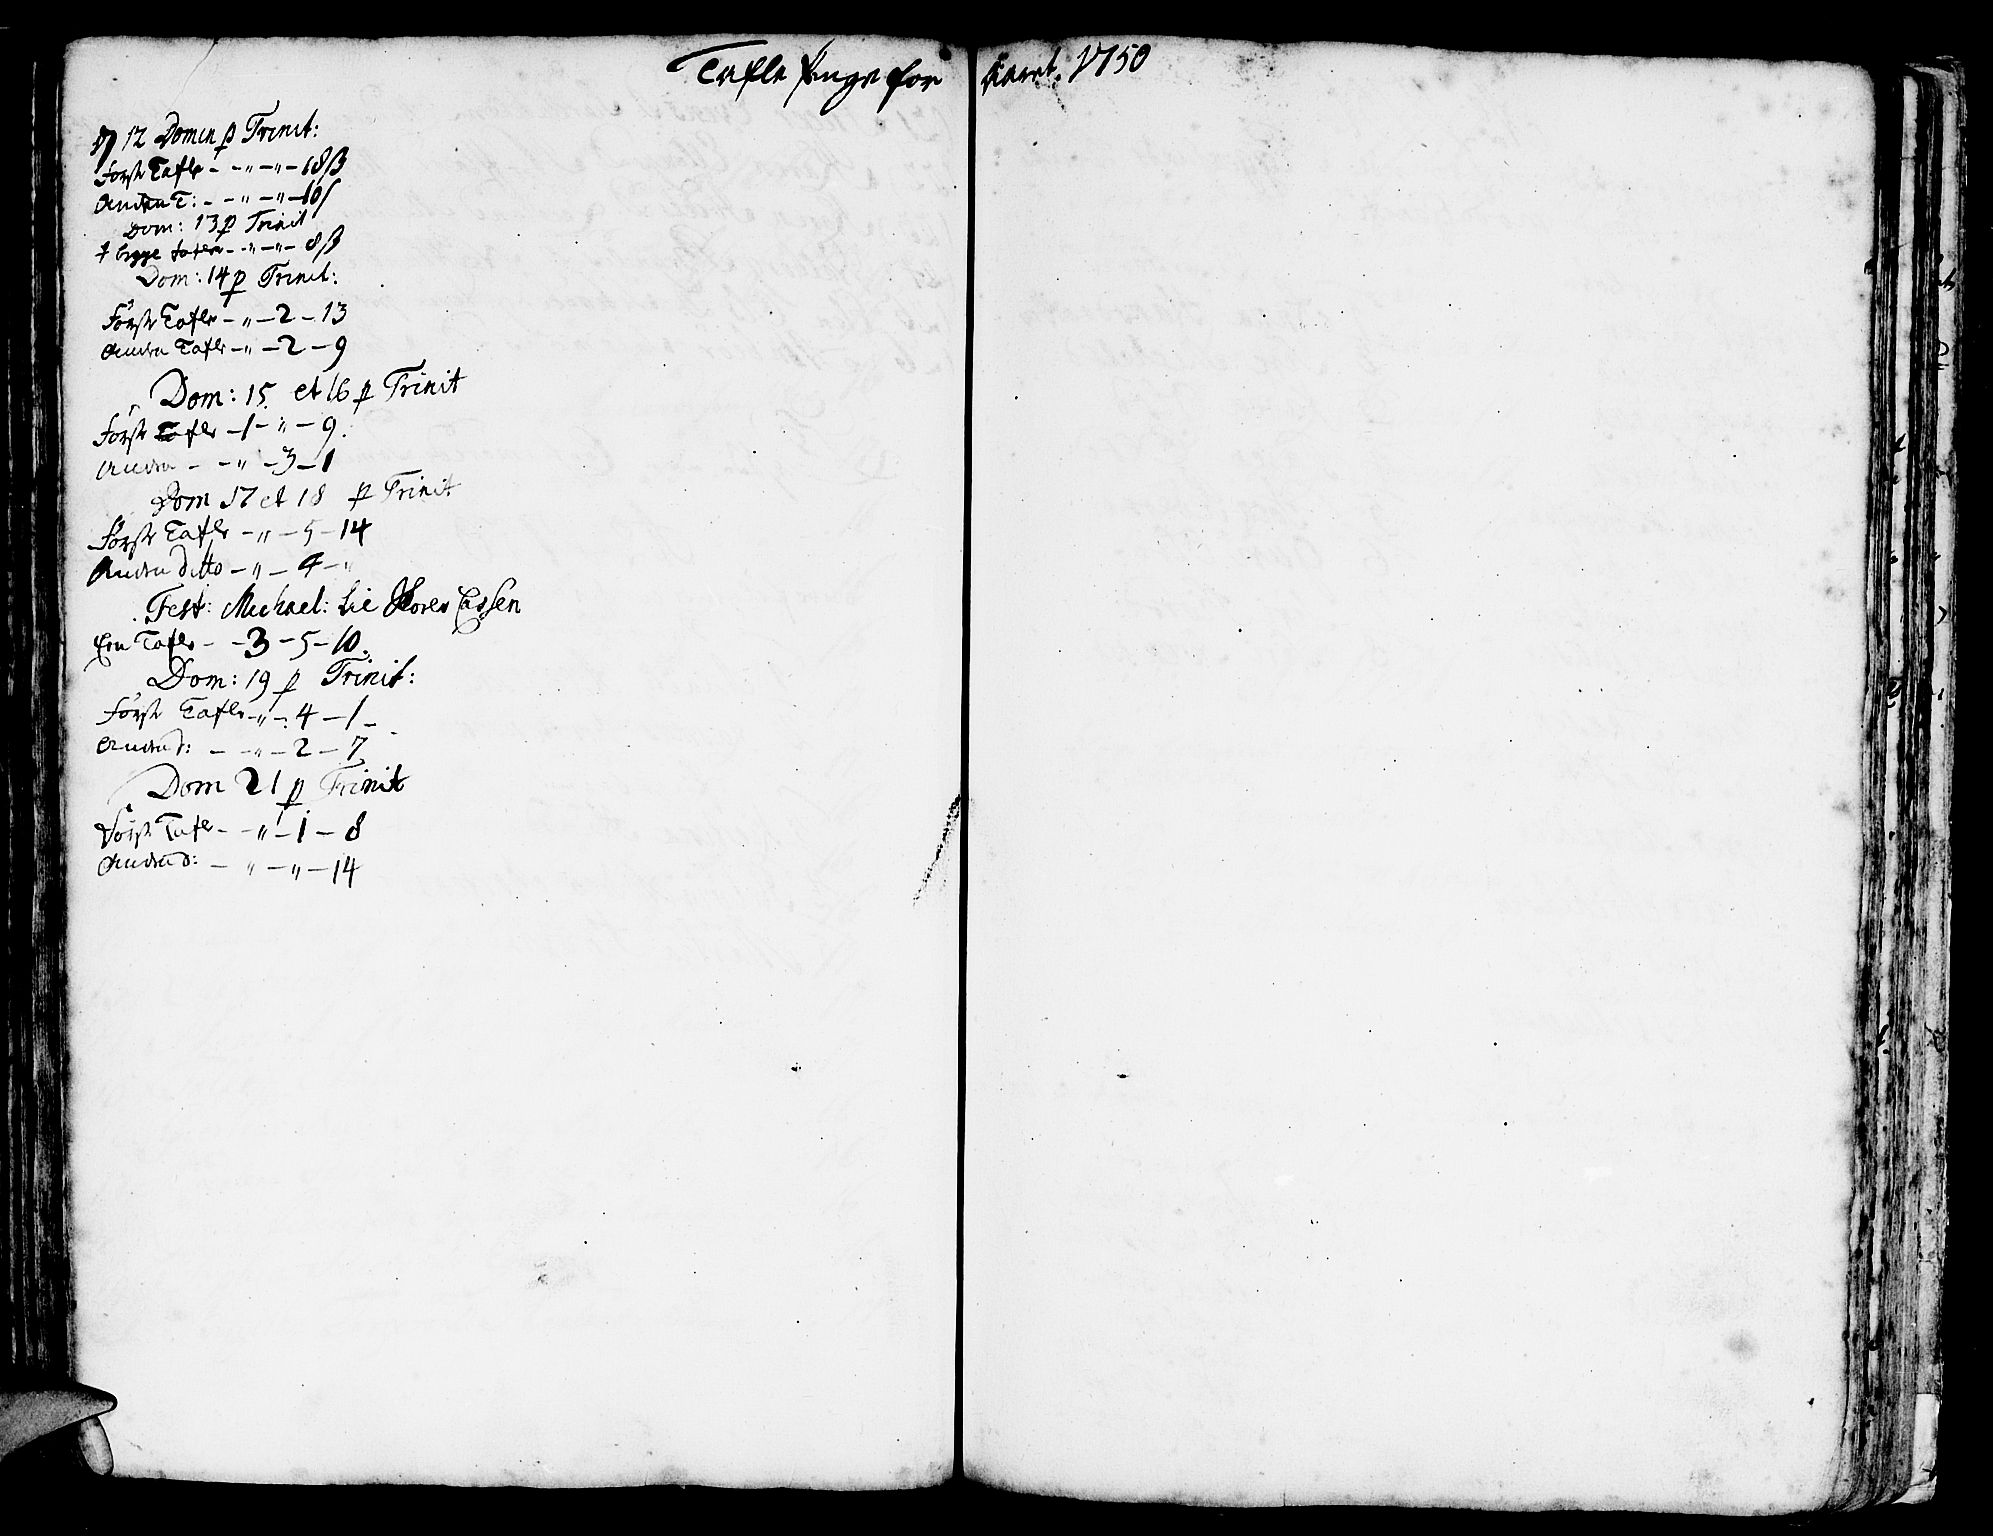 Tafle Penge for Aaret. 1750
12 Domin p Trinit:
Först Tafle - - " - " - 18 ß
Anden T: - - " - " - 10 ß
Dom: 13 p Trinit
begge tafler - - " - " - 8 ß
Dom: 14 p Trinit:
Först Tafle - " - 2 - 13
Anden Tafle - " - 2 - 9
Dom: 15. et 16 p Trinit
Först Tafle - 1 - " - 9.
Anden - - " - 3 - 1
Dom 17 et 18 p Trinit
Först Tafle - " - 5 - 14
Anden ditto - " - 4 - "
Fest: Michael:
Een Tafle - - 3 - 5 - 10.
Dom: 19 p Trinit:
Först Tafle - " - 4 - 1 -
Anden d: - - " - 2 - 7
Dom 21 p Trinit
Först Tafle - - " - 1 - 8
Anden d: - " - " - 14